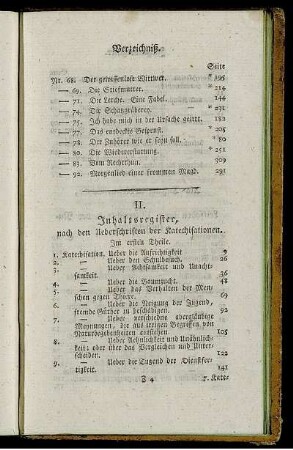 Verzeichniß.
Seite
Nr. 68. Der gewissenlose Wittwer. * 195
— 69. Die Stiefmutter. * 214
— 71. Die Lerche. Eine Fabel. 144
— 74. Die Schatzgräberey. * 231
— 75. Ich habe mich in der Ursache geirrt. 180
— 77. Das entdeckte Gespenst. * 205
— 78. Der Zuhörer wie er seyn soll. * 80
— 80. Die Wiedererstattung. * 231
— 83. Vom Rechtthun. 303
— 92. Morgenlied einer frommen Magd. 291
II.
Inhaltsregister,
nach den Ueberschriften der Katechisationen.
Im ersten Theile.
1. Katechisation. Ueber die Aufrichtigkeit
2. — Ueber den Schulbesuch. 26
3. — Ueber Achtsamkeit und Unacht-
samkeit.
4. — Ueber die Baumzucht. 48
5. — Ueber das Verhalten der Men-
schen gegen Thiere.
6. — Ueber die Neigung der Jugend,
fremde Gärten zu beschädigen. 92
7. — Ueber verschiedene abergläubige
Meynungen, die aus irrigen Begriffen von
Naturbegebenheiten entstehen 105
8. — Ueber Aehnlichkeit und Unähnlich-
keit; oder über das Vergleichen und Unter-
scheiden. 122
9. — Ueber die Tugend der Dienstfer-
tigkeit. 141
Z 4